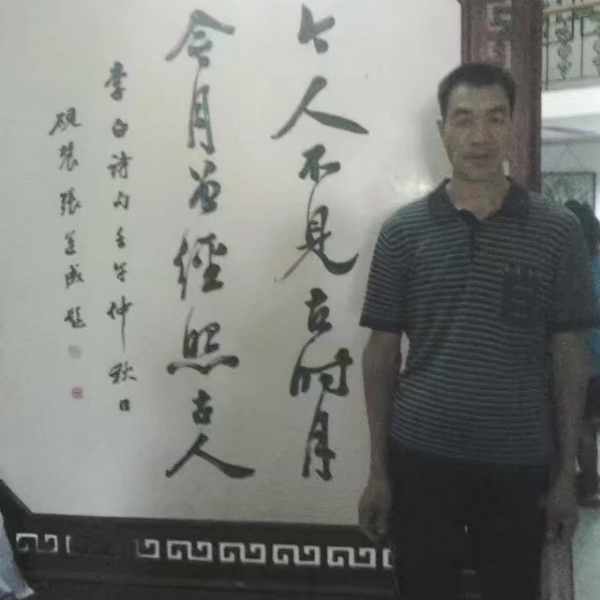 今人不见古时月
今月曾經照古人
李白诗句壬午仲秋日
砚农張道成题